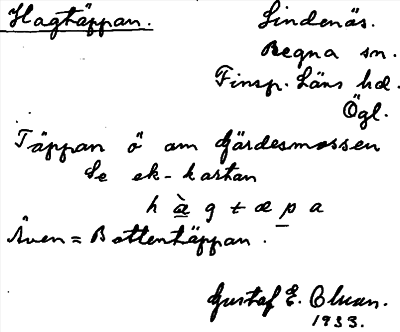 Hagtäppan. Lindenäs.
Regna sn.
Finsp. Läns hd.
Ögl.
Täppan ö om Gärdesmossen
Se ek-kartan
h æ̀ g t æ p a
Även = Bottentäppan.
Gustaf E. Olsson.
1933.